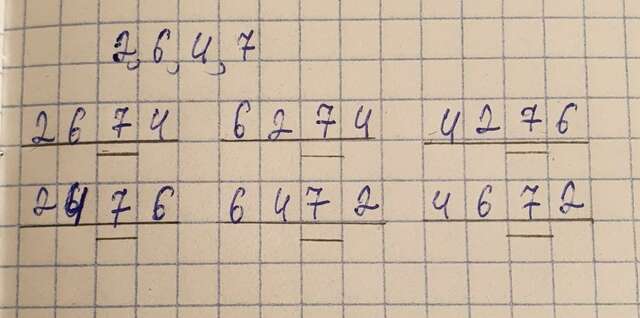 2, 6, 4, 7
2 6 7 4   6 2 7 4   4 2 7 6
2 4 7 6   6 4 7 2   4 6 7 2